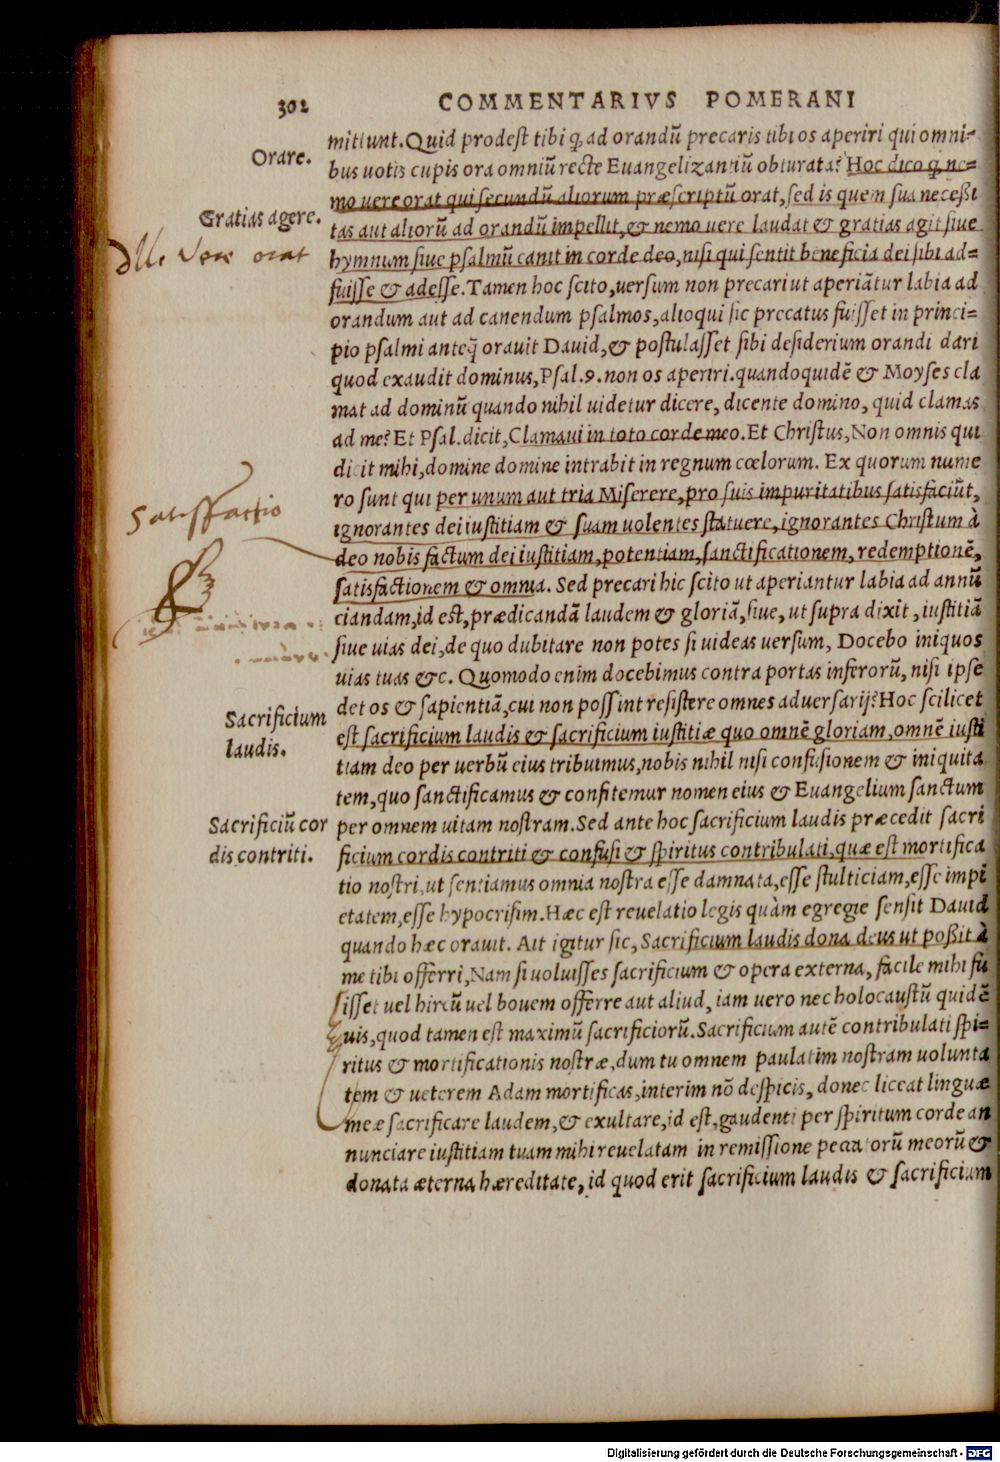 302 COMMENTARIVS POMERANI
mittunt. Quid prodest tibi ꝙ ad orandũ precaris tibi os aperiri qui omni-
Orare.
bus uotis cupis ora omniũ recte Euangelizantiũ obturata? Hoc dico ꝙ ne-
mo uere orat qui secundũ aliorum præscriptũ orat, sed is quem sua necessi
Gratias agere.
tas aut aliorũ ad orandũ impellit, & nemo uere laudat & gratias agit siue
Ille vere orat
hymnum siue psalmũ canit in corde deo, nisi qui sentit beneficia dei sibi ad-
fuisse & adesse. Tamen hoc scito, uersum non precari ut aperiãtur labia ad
orandum aut ad canendum psalmos, alioqui sic precatus fuisset in princi-
pio psalmi anteq̃ orauit Dauid, & postulasset sibi desiderium orandi dari
quod exaudit dominus, Psal. 9. non os aperiri. quandoquidẽ & Moyses cla
mat ad dominũ quando nihil uidetur dicere, dicente domino, quid clamas
ad me? Et Psal. dicit, Clamaui in toto corde meo. Et Christus, Non omnis qui
dicit mihi, domine domine intrabit in regnum cœlorum. Ex quorum nume
ro sunt qui per unum aut tria Miserere, pro suis impuritatibus satisfaciũt,
Satisfactio
ignorantes dei iustitiam & suam uolentes statuere, ignorantes Christum à
deo nobis factum dei iustitiam, potentiam, sanctificationem, redemptionẽ,
satisfactionem & omnia. Sed precari hic scito ut aperiantur labia ad annũ
ciandam, id est, prædicandã laudem & gloriã, siue, ut supra dixit, iustitiã
siue uias dei, de quo dubitare non potes si uideas uersum, Docebo iniquos
uias tuas &c. Quomodo enim docebimus contra portas inferorũ, nisi ipse
det os & sapientiã, cui non possint resistere omnes aduersarij? Hoc scilicet
Sacrificium
laudis.
est sacrificium laudis & sacrificium iustitiæ quo omnẽ gloriam, omnẽ iusti
tiam deo per uerbũ eius tribuimus, nobis nihil nisi confusionem & iniquita
tem, quo sanctificamus & confitemur nomen eius & Euangelium sanctum
Sacrificiũ cor
dis contriti.
per omnem uitam nostram. Sed ante hoc sacrificium laudis præcedit sacri
ficium cordis contriti & confusi & spiritus contribulati, quæ est mortifica
tio nostri, ut sentiamus omnia nostra esse damnata, esse stulticiam, esse impi
etatem, esse hypocrisim. Hæc est reuelatio legis quàm egregie sensit Dauid
quando hæc orauit. Ait igitur sic, Sacrificium laudis dona deus ut possit à
me tibi offerri, Nam si uoluisses sacrificium & opera externa, facile mihi fu
isset uel hircũ uel bouem offerre aut aliud, iam uero nec holocaustũ quidẽ
uis, quod tamen est maximũ sacrificiorũ. Sacrificium autẽ contribulati spi-
ritus & mortificationis nostræ, dum tu omnem paulatim nostram uolunta
tem & ueterem Adam mortificas, interim nõ despicis, donec liceat linguæ
meæ sacrificare laudem, & exultare, id est, gaudenti per spiritum corde an
nunciare iustitiam tuam mihi reuelatam in remissione peccatorũ meorũ &
donata æterna hæreditate, id quod erit sacrificium laudis & sacrificium
Digitalisierung gefördert durch die Deutsche Forschungsgemeinschaft - DFG